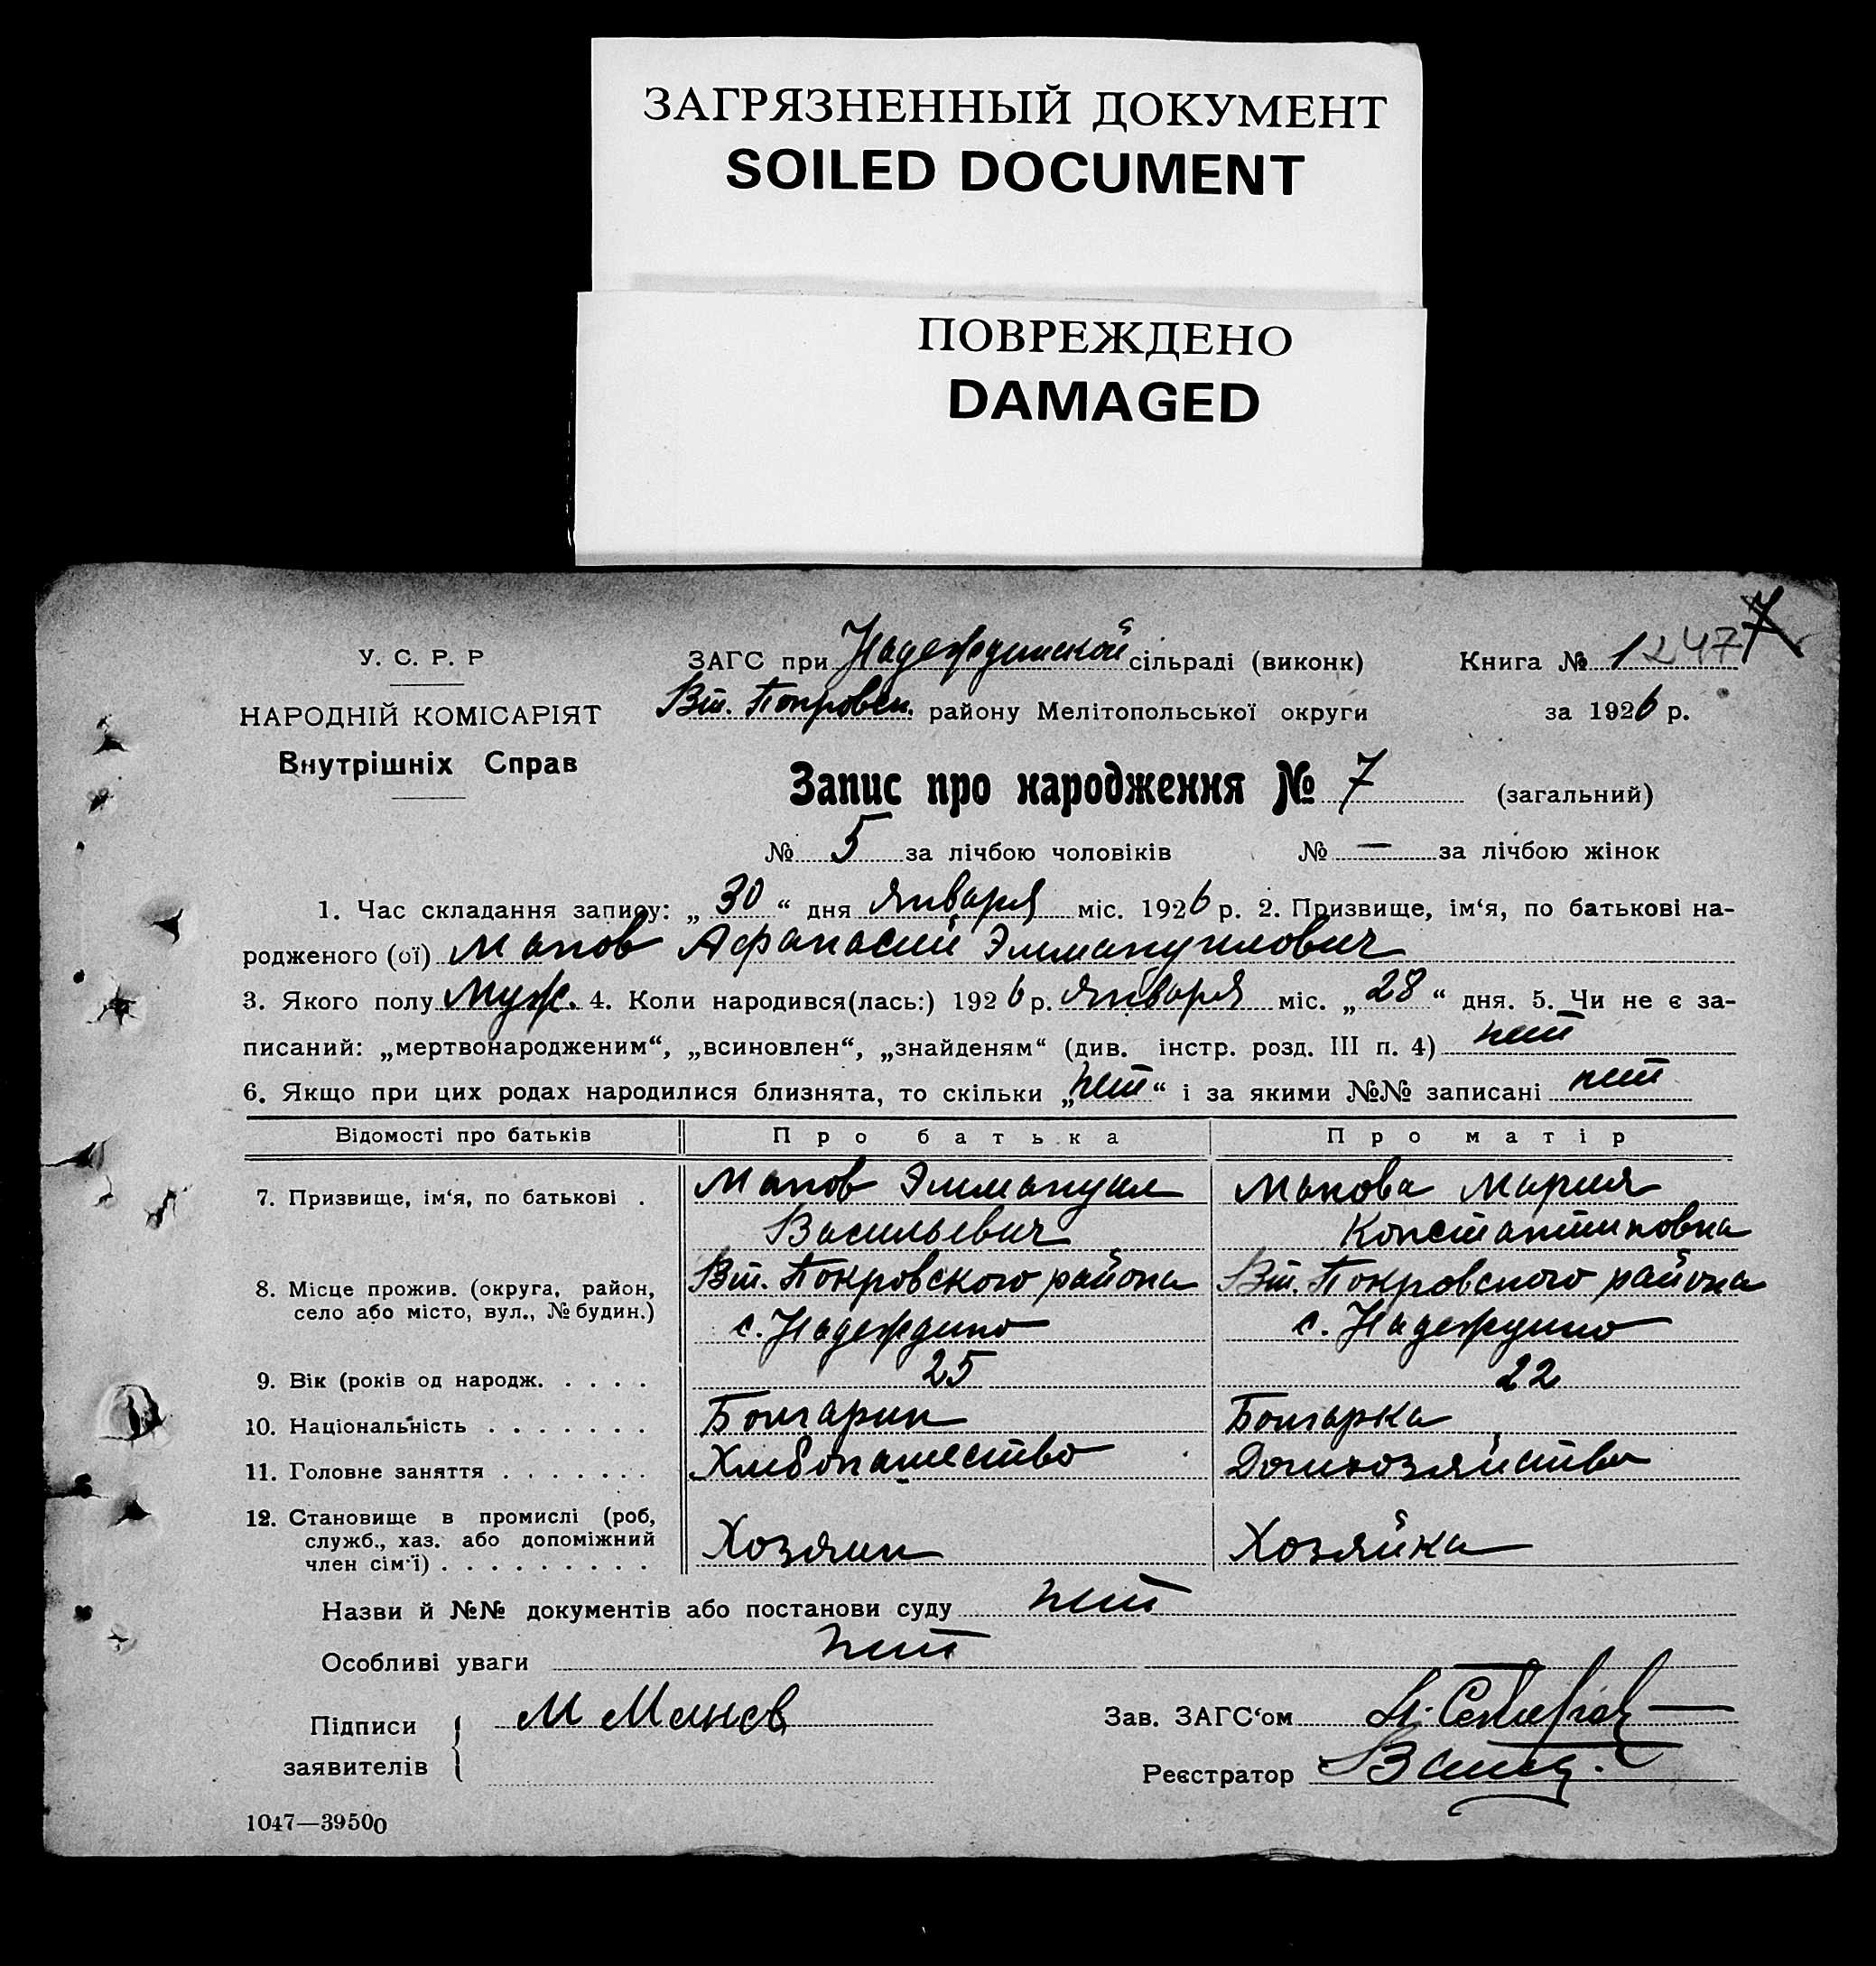 ЗАГРЯЗНЕННЫЙ ДОКУМЕНТ
SOILED DOCUMENT
ПОВРЕЖДЕНО
DAMAGED
7
У. С. Р. Р
НАРОДНІЙ КОМІСАРІЯТ
Внутрішніх Справ
ЗАГС при Надеждинской сільраді (виконк)
Книга № 1 247
Вт. Покровск. району Мелітопольської округи
за 1926 р.
Запис про народження № 7 (загальний)
№ 5 за лічбою чоловіків № — за лічбою жінок
1. Час складання запису: „ 30 “ дня января міс. 1926 р. 2. Призвище, ім‘я, по батькові на-
родженого (ої) Манов Афанасий Эммануилович
3. Якого полу Муж. 4. Коли народився(лась:) 1926 р. января міс. „ 28 “ дня. 5. Чи не є за-
писаний: „мертвонародженим“, „всиновлен“, „знайденям“ (див. інстр. розд. III п. 4) нет
6. Якщо при цих родах народилися близнята, то скільки „нет“ і за якими №№ записані нет
Відомості про батьків Про батька Про матір
7. Призвище, ім‘я, по батькові . Манов Эммануил Манова Мария
Васильевич Константиновна
8. Місце прожив. (округа, район, Вт. Покровского района Вт. Покровского района
село або місто, вул., № будин.) с. Надеждино с. Надеждино
9. Вік (років од народж. . . . . 25 22
10. Національність . . . . . . . Болгарин Болгарка
11. Головне заняття . . . . . . . Хлебопашество Домхозяйство
12. Становище в промислі (роб,
служб., хаз. або допоміжний Хозяин Хозяйка
член сім‘ї) . . . . . . . . .
Назви й №№ документів або постанови суду нет
Особливі уваги нет
Підписи М Манов
заявителів
Зав. ЗАГС‘ом
Реєстратор
1047—39500